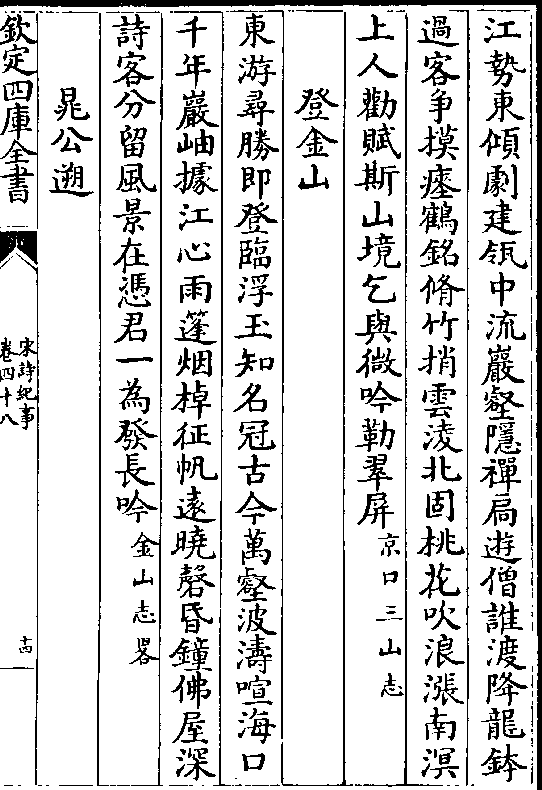 江勢東傾劇建瓴中流巖壑隱禪扃遊僧誰渡降龍鉢
過客争摸瘞鶴銘脩竹捎雲淩北固桃花吹浪漲南溟
上人勸賦斯山境乞與微吟勒翠屏京口三山志
登金山
東游尋勝即登臨浮玉知名冠古今萬壑波濤喧海口
千年巖岫據江心雨篷烟棹征帆遠曉磬昏鐘佛屋深
詩客分留風景在憑君一為發長吟金山志畧
晁公遡
欽定四庫全書
宋詩紀事
卷四十八
十四